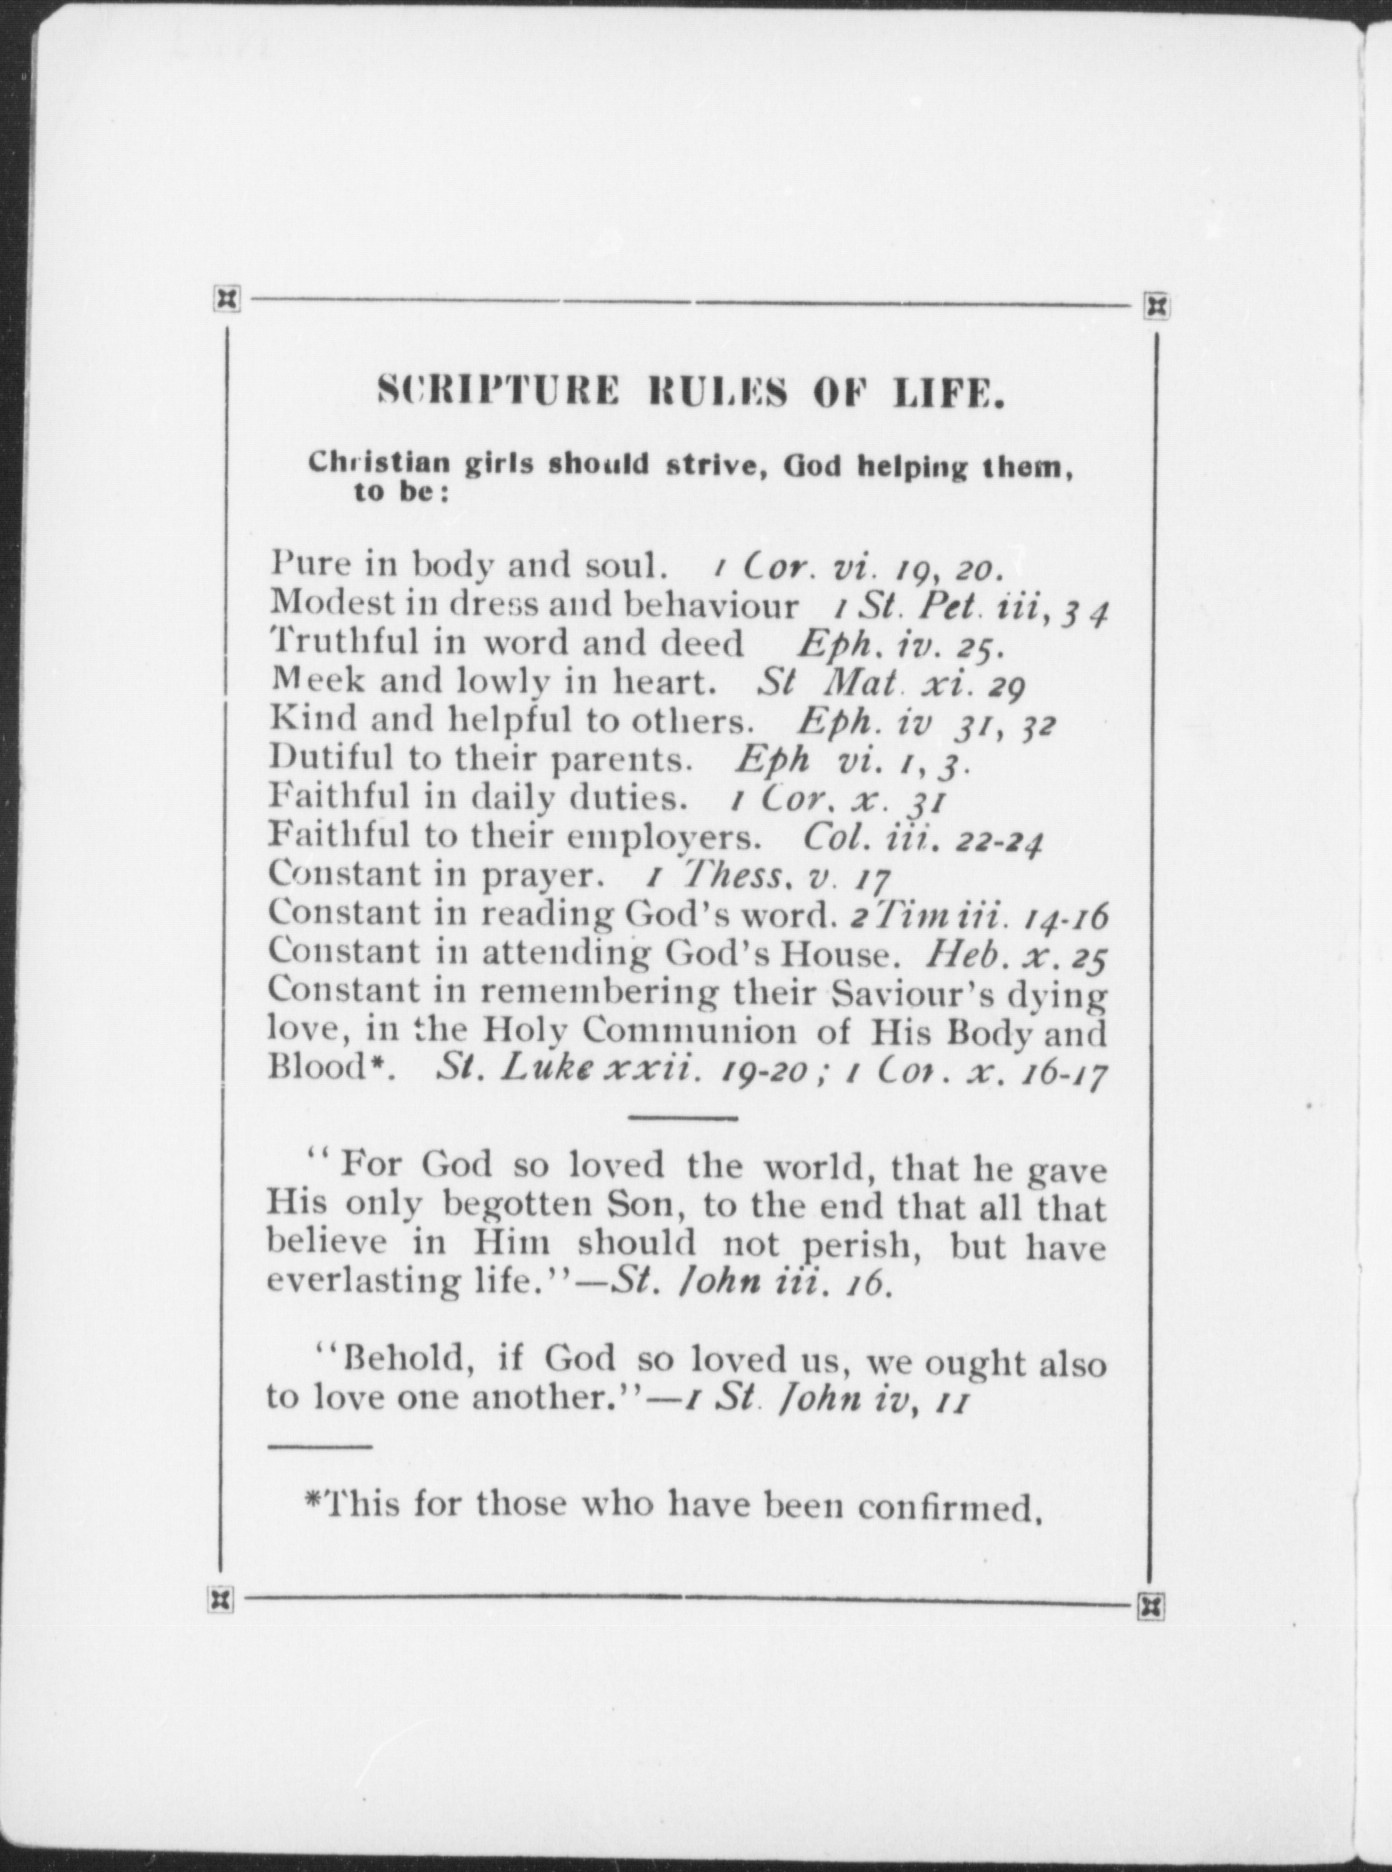 SCRIPTURE RULES OF LIFE.
Christian girls should strive, God helping them,
to be:
Pure in body and soul. 1 Cor. vi. 19, 20.
Modest in dress and behaviour 1 St. Pet. iii, 3 4
Truthful in word and deed Eph. iv. 25.
Meek and lowly in heart. St Mat. xi. 29
Kind and helpful to others. Eph. iv 31, 32
Dutiful to their parents. Eph vi. 1, 3.
Faithful in daily duties. 1 Cor. x. 31
Faithful to their employers. Col. iii. 22-24
Constant in prayer. 1 Thess. v. 17
Constant in reading God's word. 2 Tim iii. 14-16
Constant in attending God's House. Heb. x. 25
Constant in remembering their Saviour's dying
love, in the Holy Communion of His Body and
Blood*. St. Luke xxii. 19-20; 1 Cor. x. 16-17
"For God so loved the world, that he gave
His only begotten Son, to the end that all that
believe in Him should not perish, but have
everlasting life."—St. John iii. 16.
"Behold, if God so loved us, we ought also
to love one another."—1 St. John iv, 11
*This for those who have been confirmed,